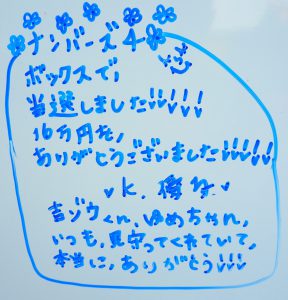 ナンバーズ4
ボックスで、
当選しました!!!!!
16万円を、
ありがとうございました!!!!!
K.
吉ゾウくん、ゆめちゃん、
いつも、見守ってくれていて、
本当に、ありがとう!!!